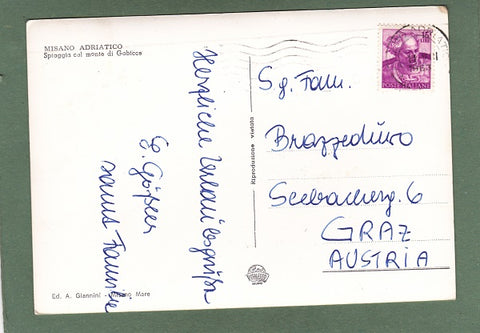 MISANO ADRIATICO
Spiaggia col monte di Gabicce
Herzliche Urlaubsgrüße
samt Familie
Riproduzione vietata
POSTE ITALIANE
Sg. Fam.
Seebacherg. 6
GRAZ
AUSTRIA
Ed. A. Giannini - Misano Mare